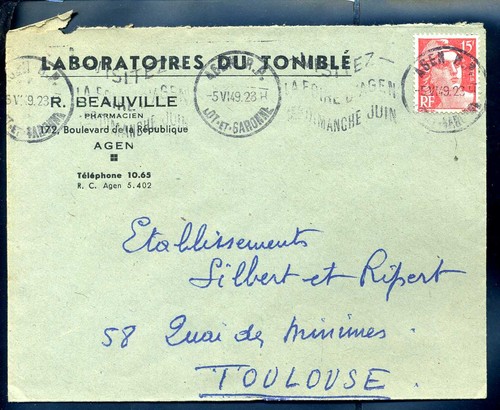 LABORATOIRES DU TONIBLÉ
R. BEAUVILLE
PHARMACIEN
172, Boulevard de la République
AGEN
Téléphone 10.65
R. C. Agen 5.402
VISITEZ
LA FOIRE D'AGEN
DIMANCHE JUIN
AGEN R.P.
-5 VI 49. 23 H
LOT-ET-GARONNE
VISITEZ
LA FOIRE D'AGEN
DIMANCHE JUIN
AGEN R.P.
-5 VI 49. 23
LOT-ET-GARONNE
15F
RF
Etablissements
Silbert et Ripert
58 Quai des Minimes.
TOULOUSE.